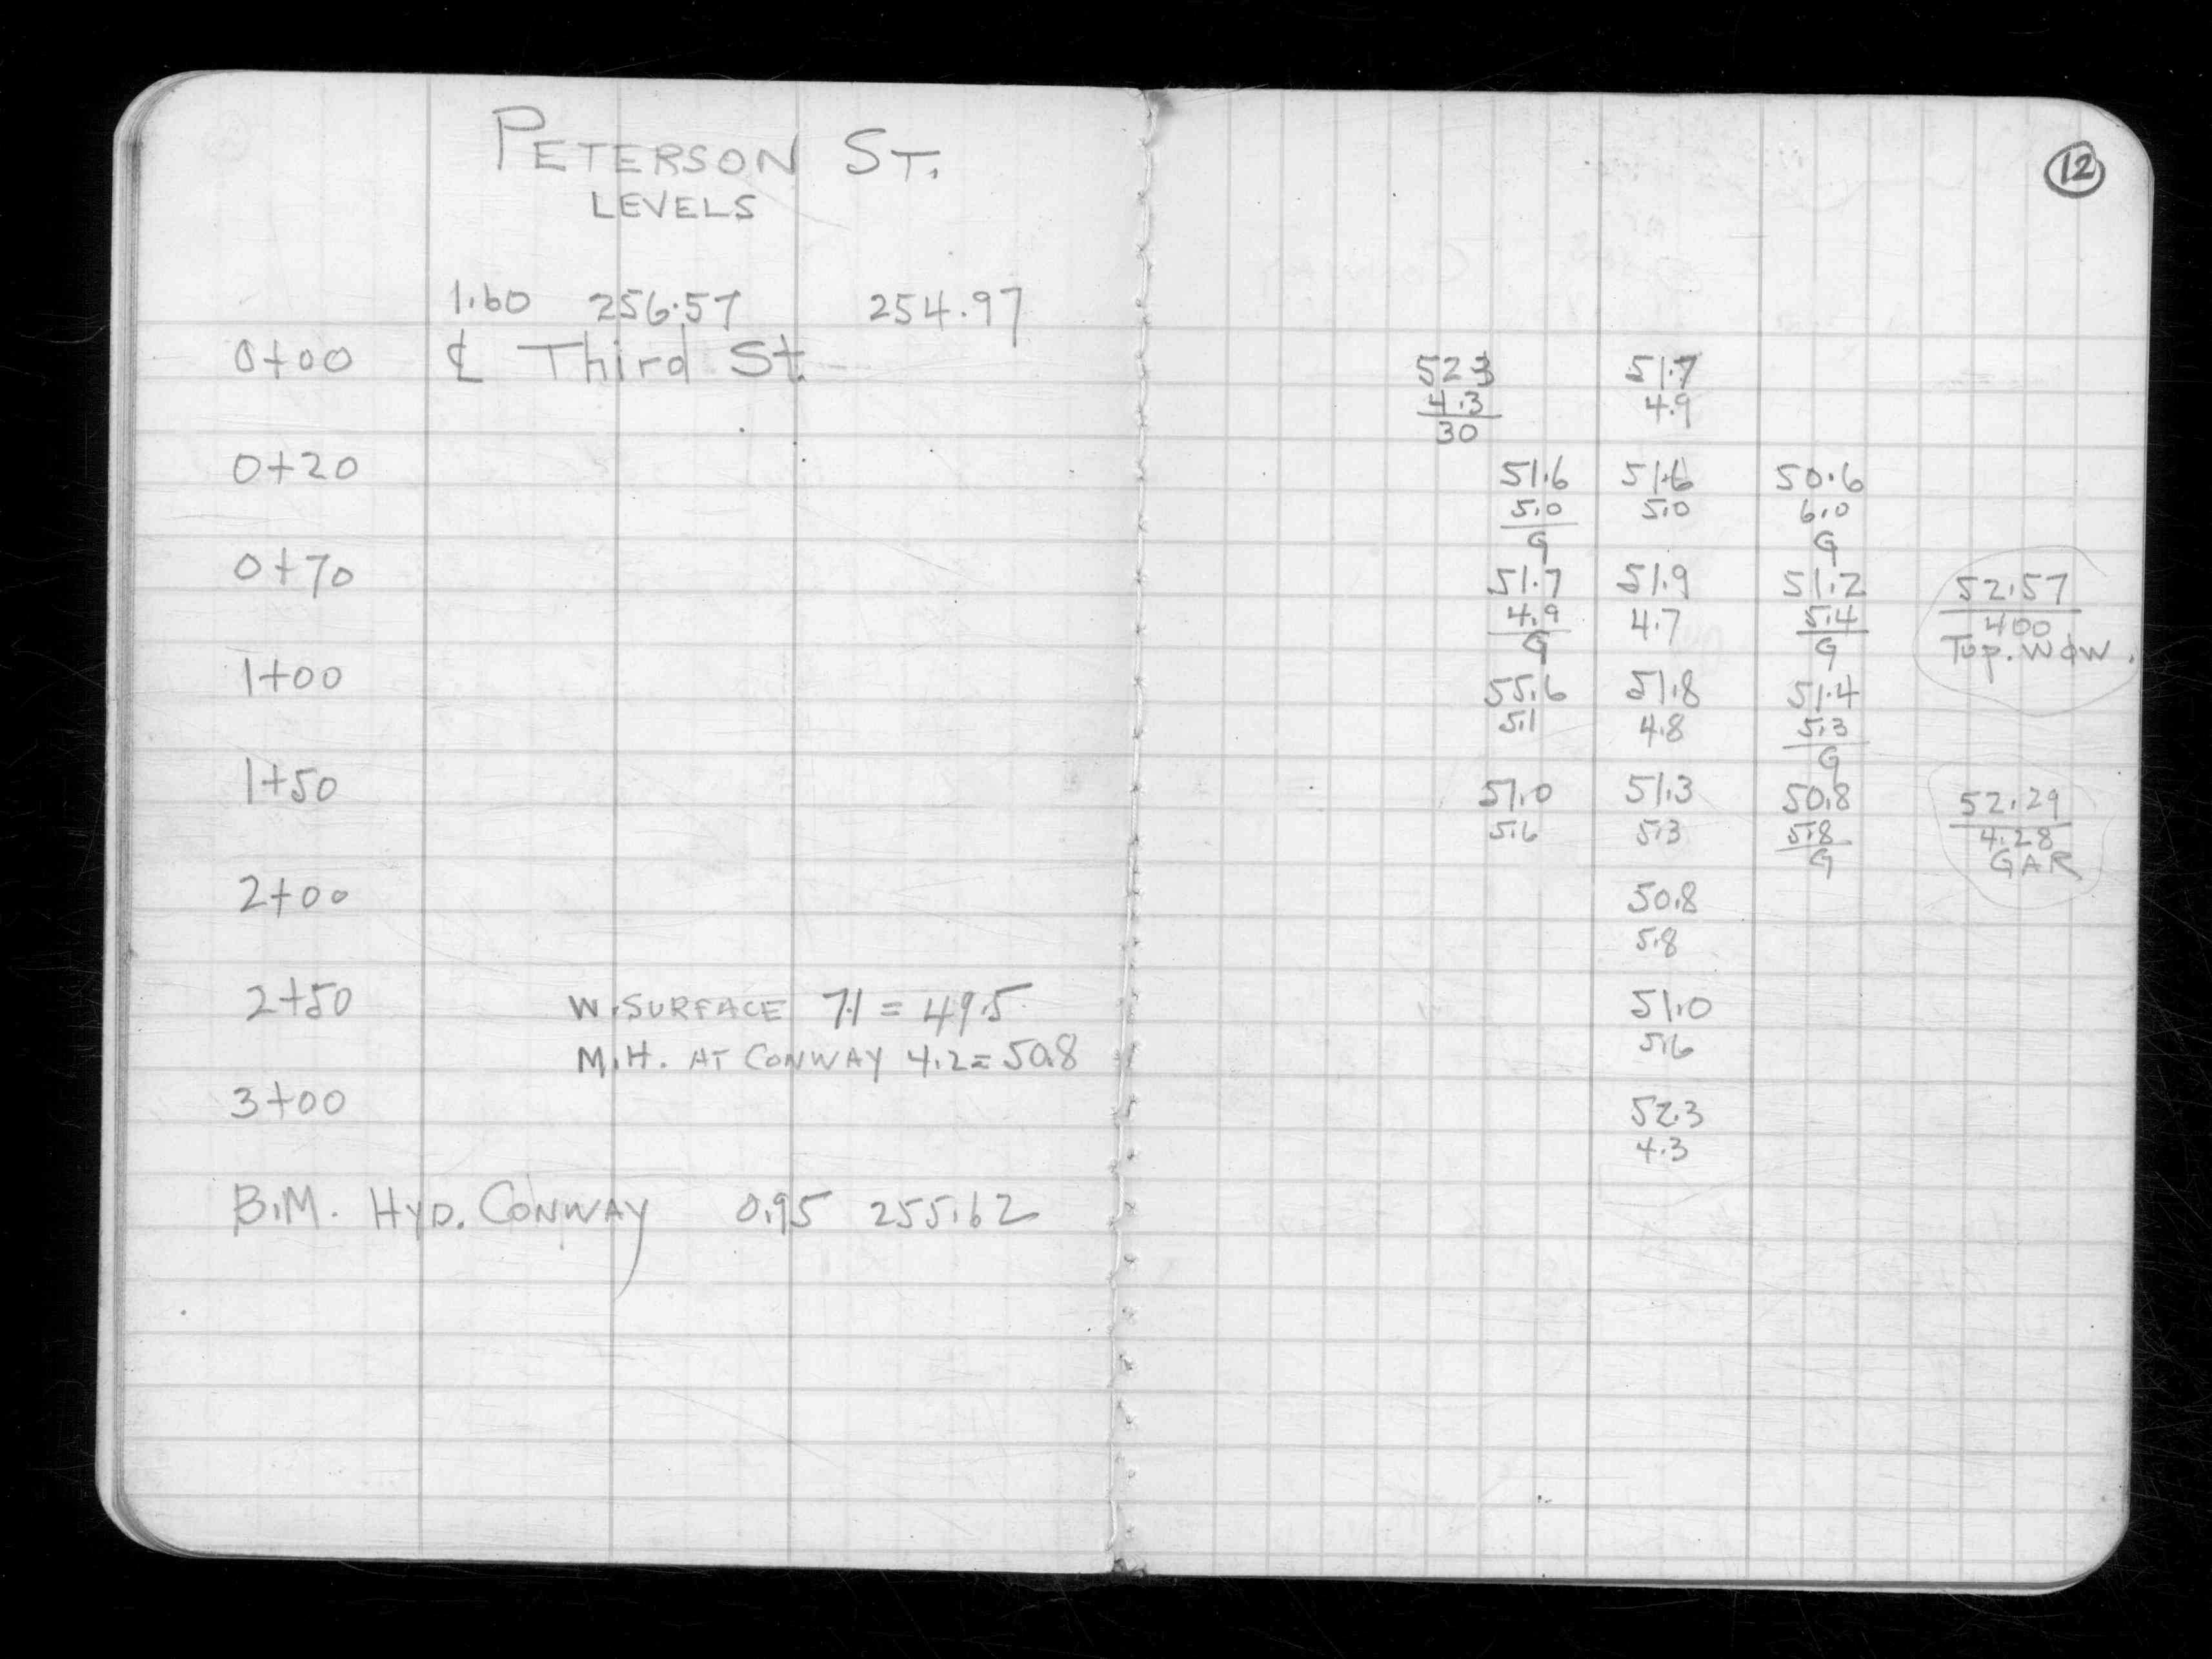 PETERSON ST.
LEVELS
1.60 256.57 254.97
0+00 ℄ Third St.
0+20
0+70
1+00
1+50
2+00
2+50 W. SURFACE 7.1 = 49.5
M.H. AT CONWAY 4.2 = 50.8
3+00
B.M. HYD. CONWAY 0.95 255.62
12
52.3 51.7
4.3 4.9
30
51.6 51.6 50.6
5.0 5.0 6.0
G G
51.7 51.9 51.2 52.57
4.9 4.7 5.4 400
G G Top. WdW.
55.6 51.8 51.4
5.1 4.8 5.3
G
51.0 51.3 50.8 52.29
5.6 5.3 5.8 4.28
G GAR
50.8
5.8
51.0
5.6
52.3
4.3